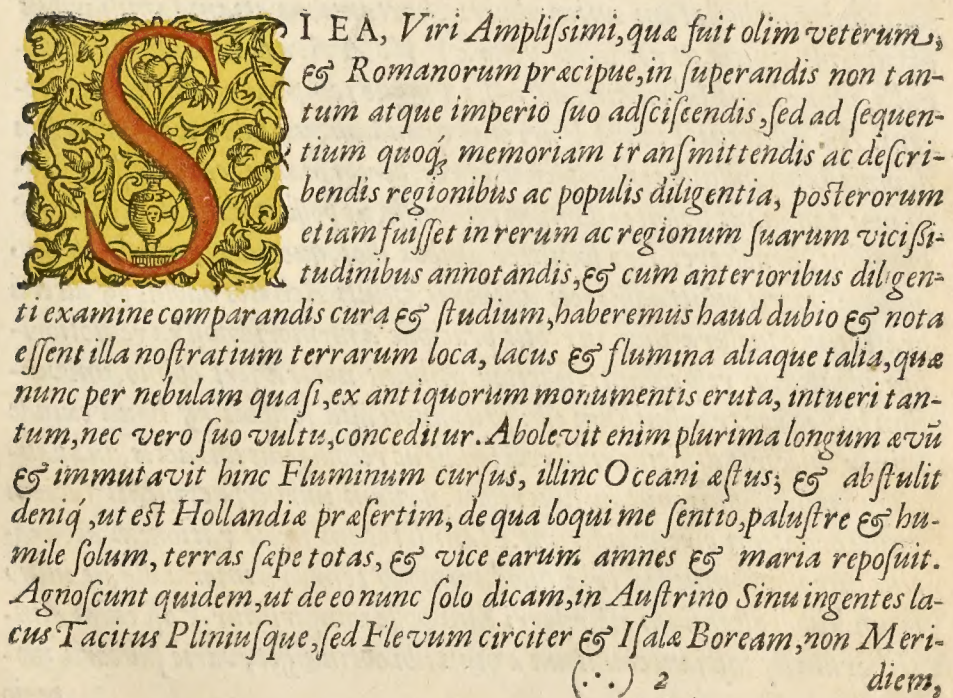 SI EA, Viri Ampliſsimi, quæ fuit olim veterum,
& Romanorum præcipue, in ſuperandis non tan-
tum atque imperio ſuo adſciſcendis, ſed ad ſequen-
tium quoq́ꝫ memoriam tranſmittendis ac deſcri-
bendis regionibus ac populis diligentia, poſterorum
etiam fuiſſet in rerum ac regionum ſuarum viciſſi-
tudinibus annotandis, & cum anterioribus diligen-
ti examine comparandis cura & ſtudium, haberemus haud dubio & nota
eſſent illa noſtratium terrarum loca, lacus & flumina aliaque talia, quæ
nunc per nebulam quaſi, ex antiquorum monumentis eruta, intueri tan-
tum, nec vero ſuo vultu, conceditur. Abolevit enim plurima longum ævũ
& immutavit hinc Fluminum curſus, illinc Oceani æſtus; & abſtulit
deniq́, ut eſt Hollandiæ præſertim, de qua loqui me ſentio, paluſtre & hu-
mile ſolum, terras ſæpe totas, & vice earum amnes & maria repoſuit.
Agnoſcunt quidem, ut de eo nunc ſolo dicam, in Auſtrino Sinu ingentes la-
cus Tacitus Pliniuſque, ſed Flevum circiter & Iſalæ Boream, non Meri-
(∴) 2 diem,